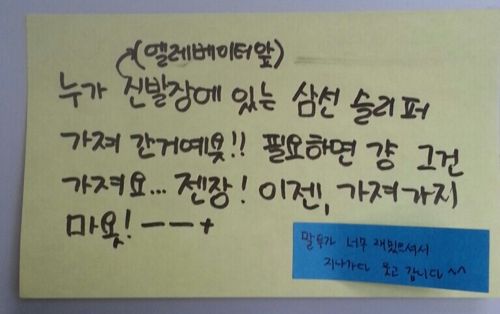 (엘레베이터앞)
누가 신발장에 있는 삼선 슬리퍼
가져 간거예욧!! 필요하면 걍 그건
가져요... 젠장! 이젠, 가져가지
마욧! ㅡㅡ+
말투가 너무 재밌으셔서
지나가다 웃고 갑니다 ^^